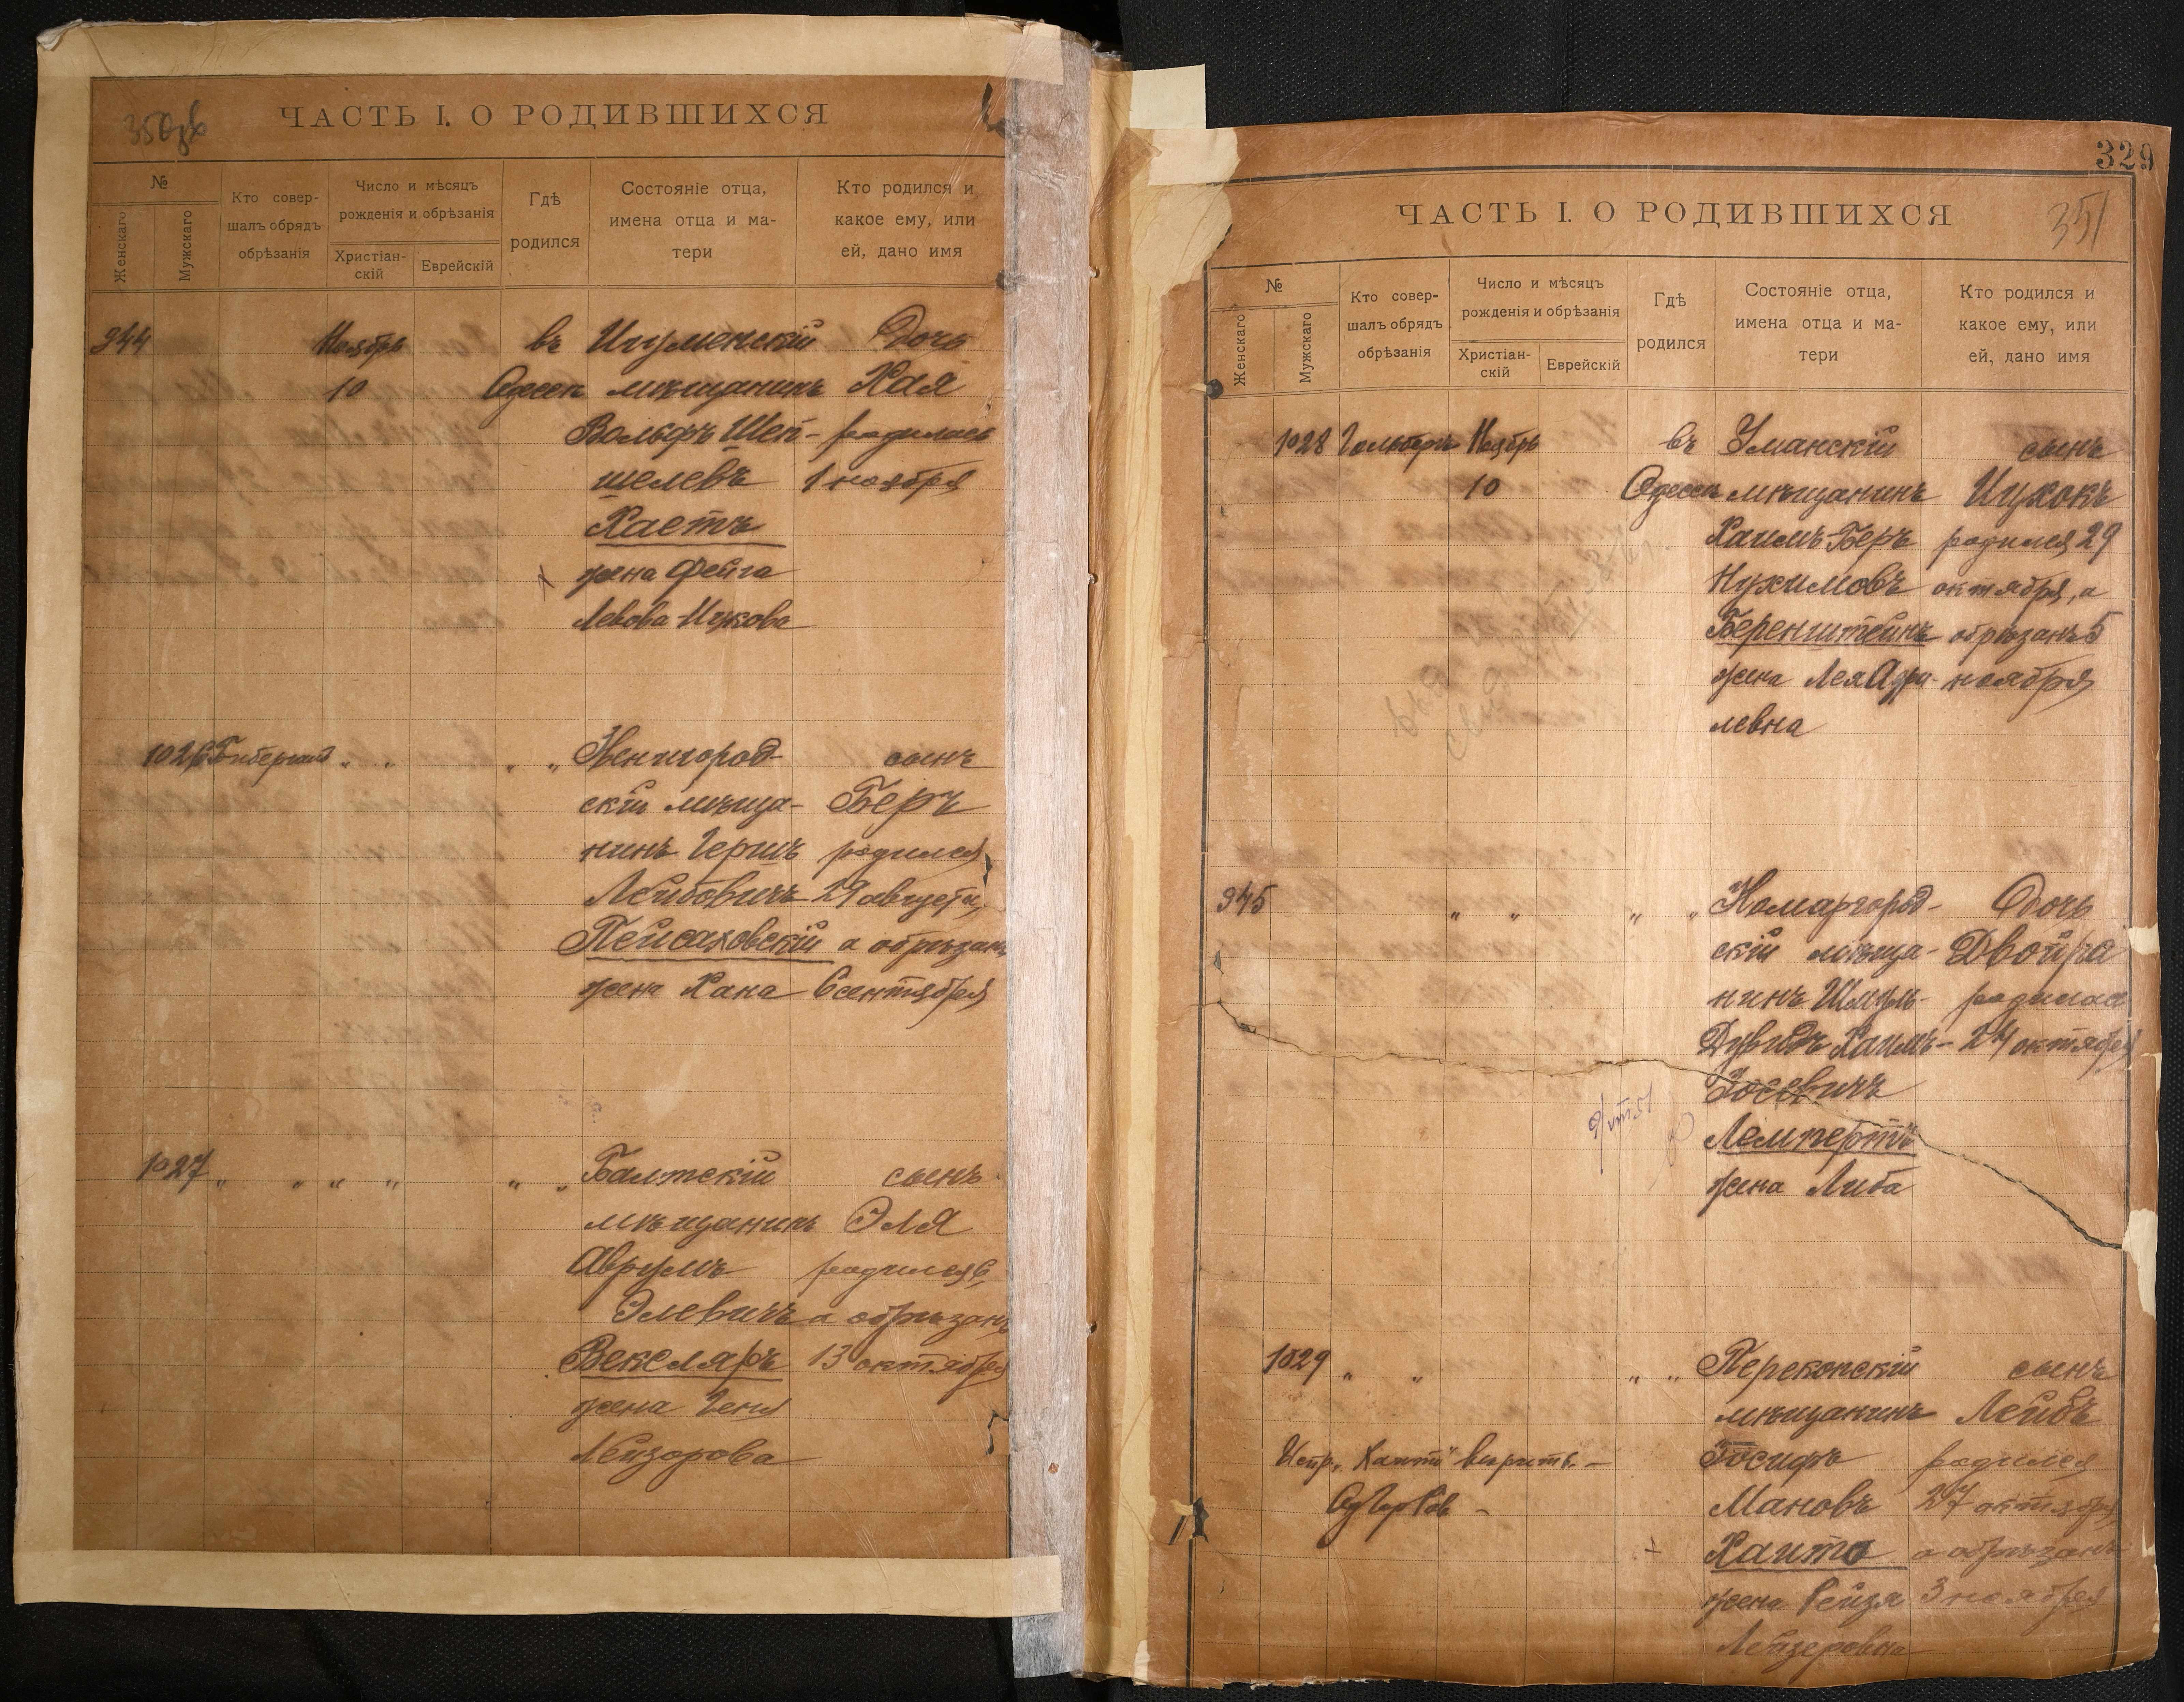 350об
ЧАСТЬ I. О РОДИВШИХСЯ
№
Женскаго
Мужскаго
Кто совер-
шалъ обрядъ
обрѣзанія
Число и мѣсяцъ
рожденія и обрѣзанія
Христіан-
скій
Еврейскій
Гдѣ
родился
Состояніе отца,
имена отца и ма-
тери
Кто родился и
какое ему, или
ей, дано имя
944 Ноябрь въ Игуменскій Дочь
10 Одессѣ мѣщанинъ Хая
Вольфъ Шеп- родилась
шелевъ 1 ноября
Хаетъ
жена Фейга
Левова-Ицкова
1026 " " " " Звенигород- сынъ
скій мѣща- Беръ
нинъ Гершъ родился
Лейбовичъ 29 августа,
Пейсаховскій а обрѣзанъ
жена Хана 6 сентября
1027 " " " " " " Балтскій сынъ
мѣщанинъ Эля
Аврумъ родился 6,
Элевичъ а обрѣзанъ
Векслеръ 13 октября
жена Геня
Лейзорова
329
351
ЧАСТЬ I. О РОДИВШИХСЯ
№
Женскаго
Мужскаго
Кто совер-
шалъ обрядъ
обрѣзанія
Число и мѣсяцъ
рожденія и обрѣзанія
Христіан-
скій
Еврейскій
Гдѣ
родился
Состояніе отца,
имена отца и ма-
тери
Кто родился и
какое ему, или
ей, дано имя
1028 Гальперъ Ноябрь въ Уманскій сынъ
10 Одессѣ мѣщанинъ Ицхокъ
Хаимъ-Беръ родился 29
Нухимовъ октября, а
Беренштейнъ обрѣзанъ 5
жена Лея Сру- ноября
левна
945 " " " " Комаргород- Дочь
скій мѣща- Двойра
нинъ Шмуль- родилась
Дувидъ Хаимъ- 24 октября
Іосевичъ
Лемпертъ
жена Либа
1029 " " " " Перекопскій сынъ
мѣщанинъ Лейбъ
Испр. "Хаитъ" вѣрить. - Іосифъ родился
Мановъ 27 октября,
Хаитъ а обрѣзанъ
жена Рейзя 3 ноября
Лейзеровна